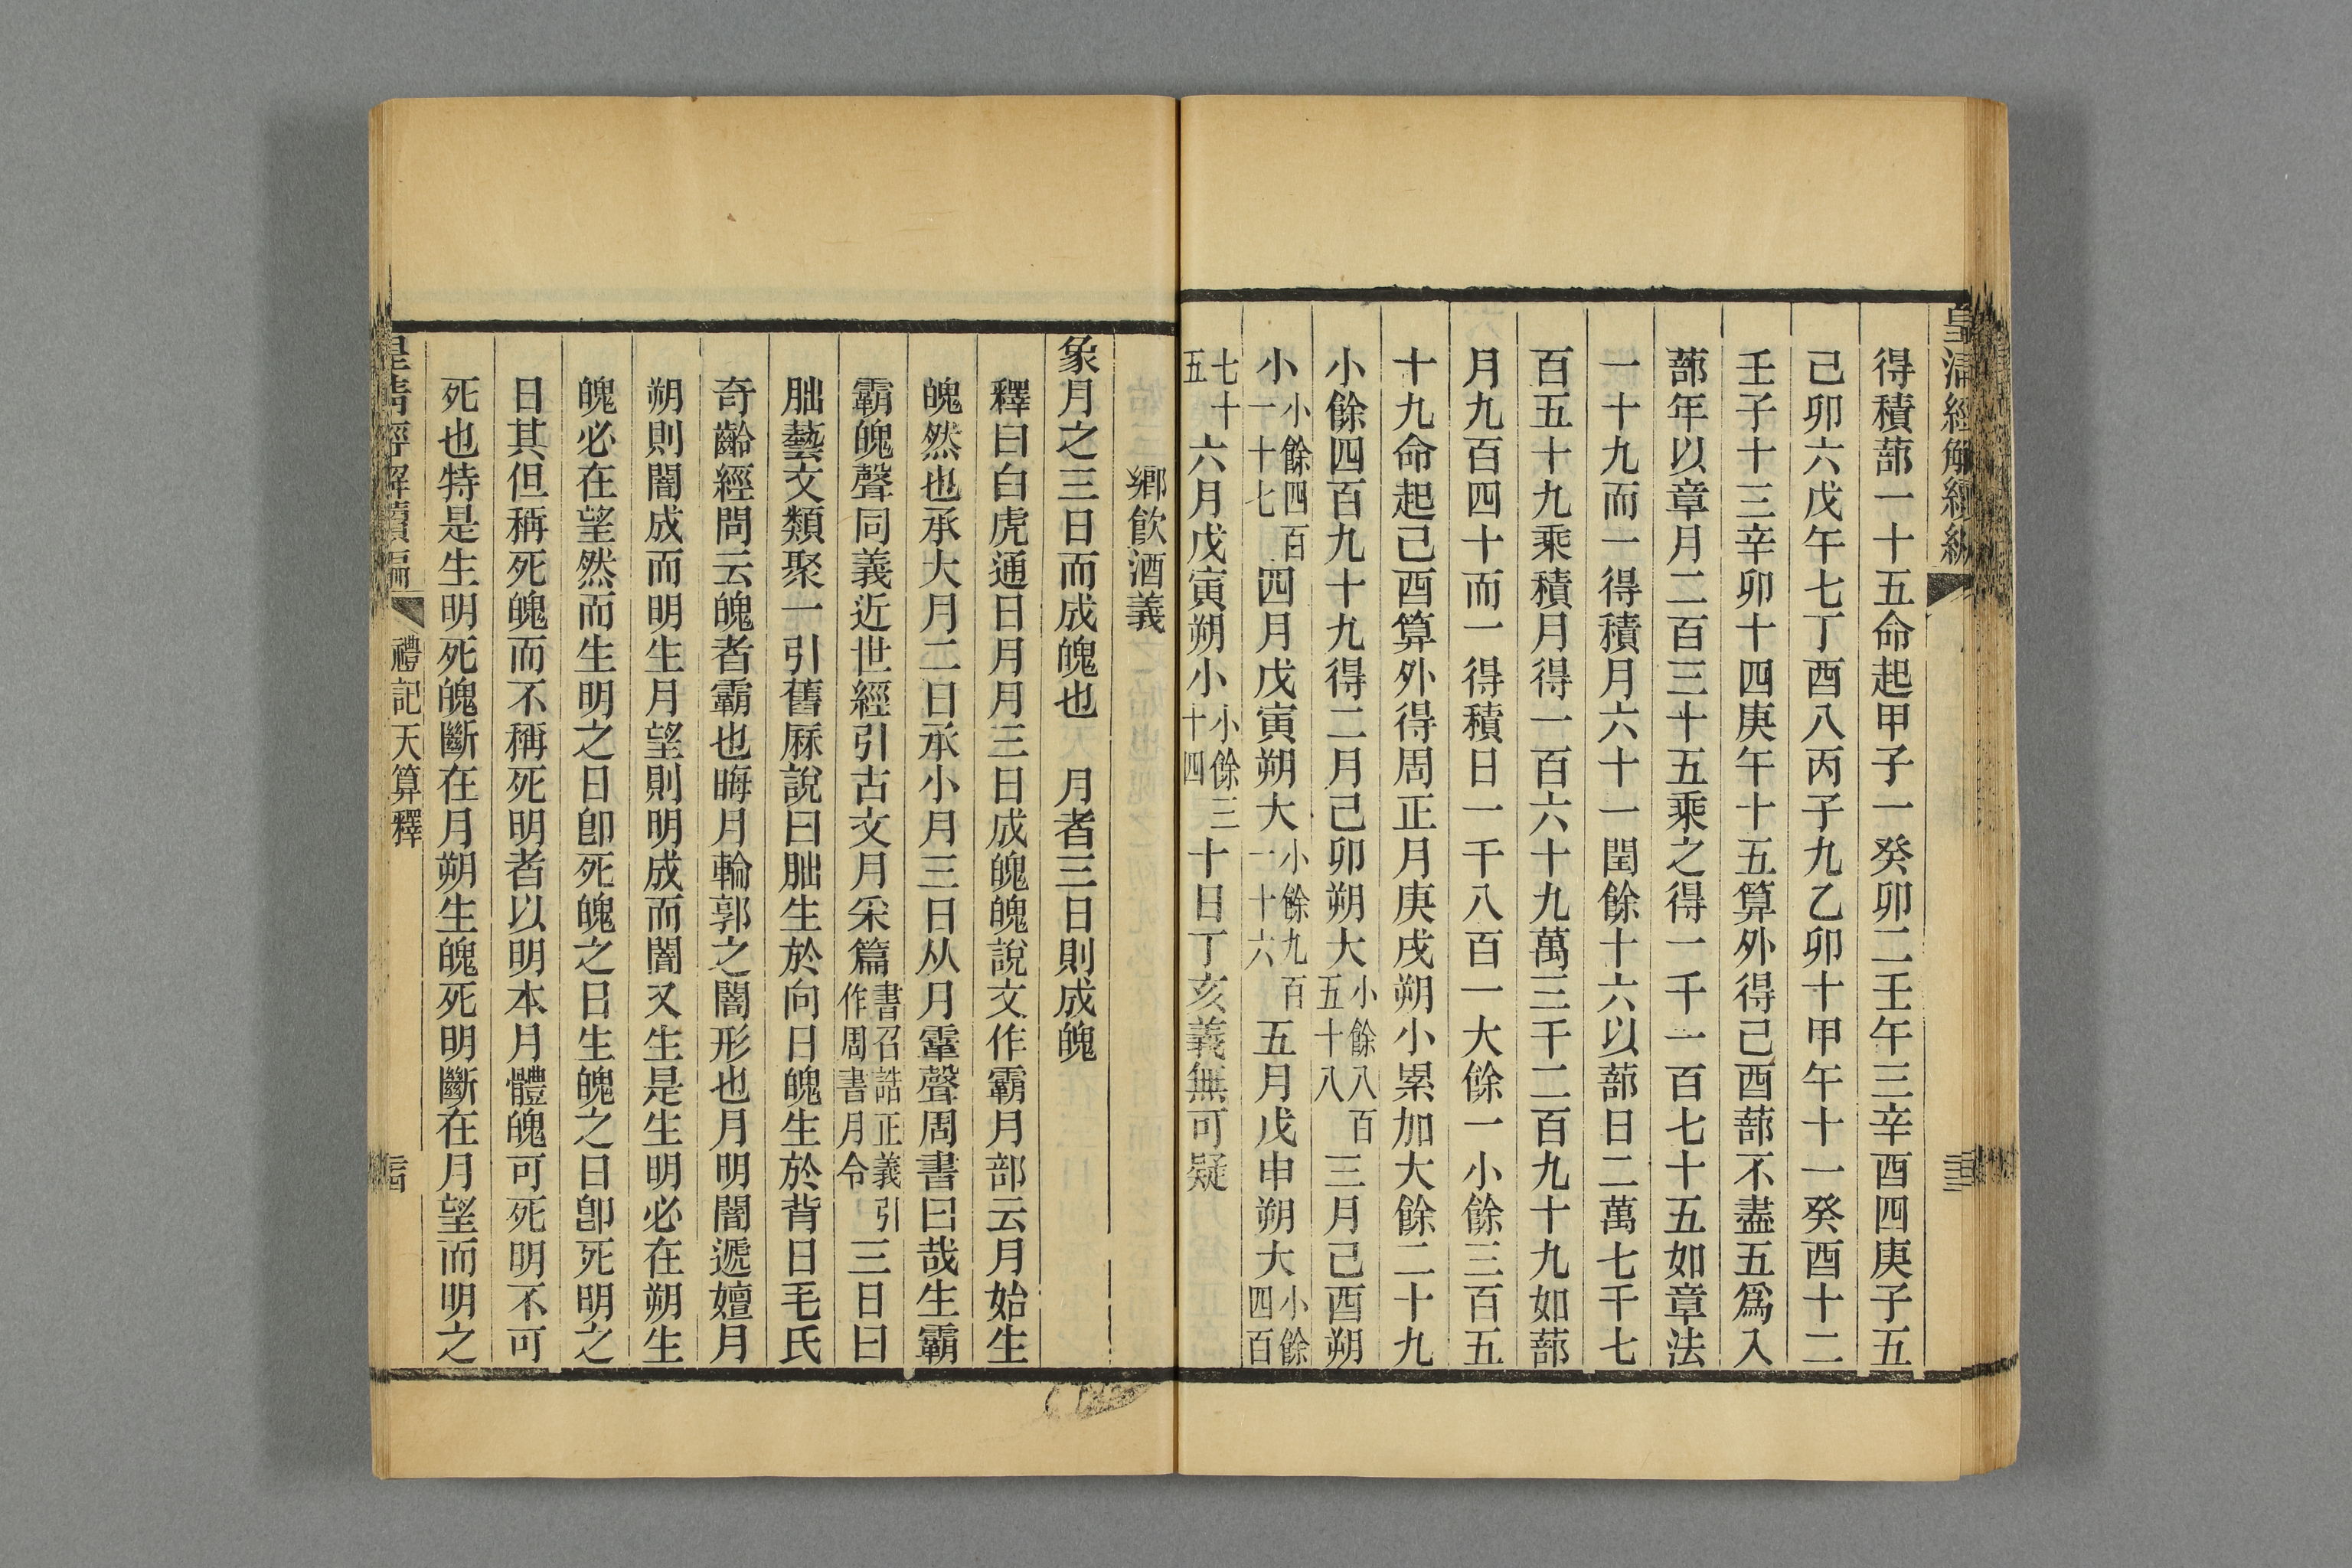 皇清經解續編
得積蔀一十五命起甲子一癸卯二壬午三辛酉四庚子五
己卯六戊午七丁酉八丙子九乙卯十甲午十一癸酉十二
壬子十三辛卯十四庚午十五算外得己酉蔀不盡五爲入
蔀年以章月二百三十五乘之得一千一百七十五如章法
一十九而一得積月六十一閏餘十六以蔀日二萬七千七
百五十九乘積月得一百六十九萬三千二百九十九如蔀
月九百四十而一得積日一千八百一大餘一小餘三百五
十九命起己酉算外得周正月庚戌朔小累加大餘二十九
小餘四百九十九得二月己卯朔大小餘八百五十八三月己酉朔
小小餘四百一十七四月戊寅朔大小餘九百一十六五月戊申朔大小餘四百
七十五六月戊寅朔小小餘三十四十日丁亥義無可疑
鄉飲酒義
象月之三日而成魄也　月者三日則成魄
釋曰白虎通日月月三日成魄魄說文作霸月部云月始生
魄然也承大月二日承小月三日从月䨣聲周書曰哉生霸
霸魄聲同義近世經引古文月采篇書召誥正義引作周書月令三日曰
朏藝文類聚一引舊厤說曰朏生於向日魄生於背日毛氏
奇齡經問云魄者霸也晦月輪郭之闇形也月明闇遞嬗月
朔則闇成而明生月望則明成而闇又生是生明必在朔生
魄必在望然而生明之日卽死魄之日生魄之日卽死明之
日其但稱死魄而不稱死明者以明本月體魄可死明不可
死也特是生明死魄斷在月朔生魄死明斷在月望而明之
皇清經解續編　禮記天算釋